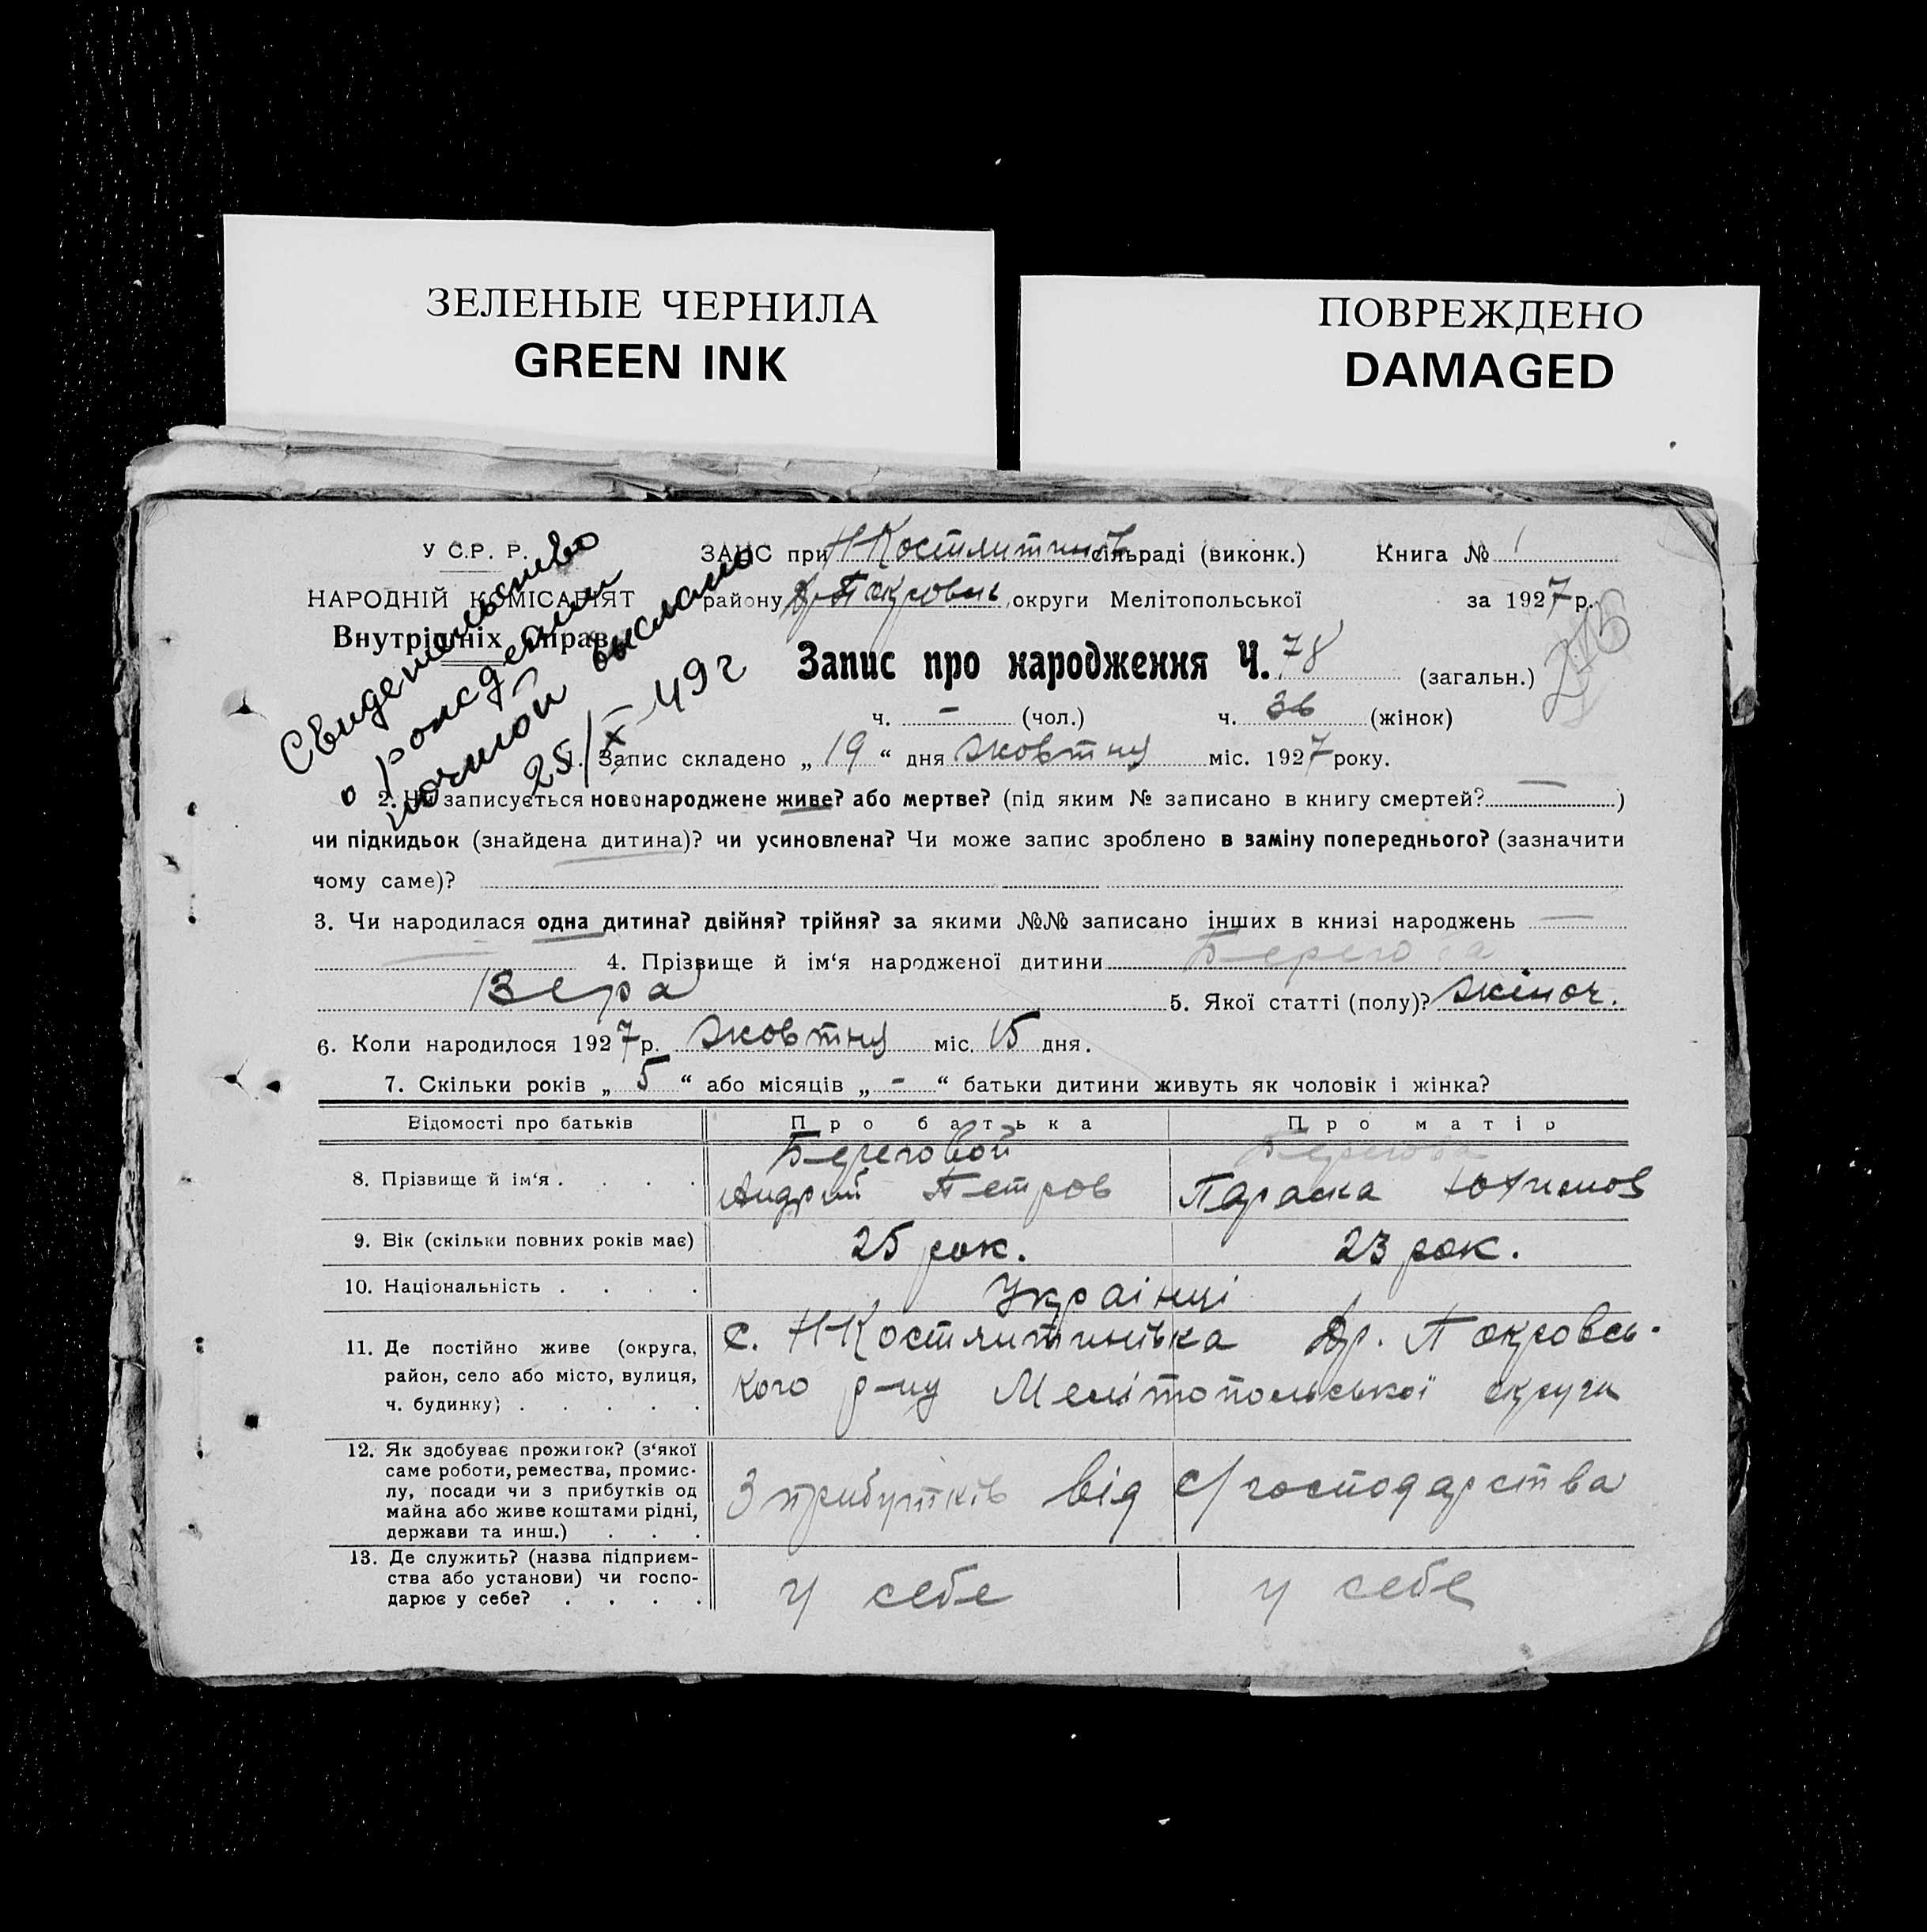 ЗЕЛЕНЫЕ ЧЕРНИЛА
GREEN INK
ПОВРЕЖДЕНО
DAMAGED
У С.Р. Р.
НАРОДНІЙ КОМІСАРІЯТ
Внутрішніх Справ
Свидетельство
о рождении
почтой выслано
25/X-49 г
ЗАГС при Н-Костянтинів сільраді (виконк.) Книга № 1
району Др. Покровсь округи Мелітопольської за 1927 р.
Запис про народження Ч. 78 (загальн.)
ч. - (чол.) ч. 36 (жінок)
1. Запис складено „ 19 “ дня жовтня міс. 1927 року.
2. Чи записується новонароджене живе? або мертве? (під яким № записано в книгу смертей? — )
чи підкидьок (знайдена дитина)? чи усиновлена? Чи може запис зроблено в заміну попереднього? (зазначити
чому саме)?
3. Чи народилася одна дитина? двійня? трійня? за якими №№ записано інших в книзі народжень —
— 4. Прізвище й ім‘я народженої дитини Берегова
Вера 5. Якої статті (полу)? жіноч.
6. Коли народилося 1927 р. жовтня міс. 15 дня.
7. Скільки років „ 5 “ або місяців „ - “ батьки дитини живуть як чоловік і жінка?
Відомості про батьків Про батька Про матір
8. Прізвище й ім‘я . . . . Береговой Андрій Петров Берегова Параска Юхимов
9. Вік (скільки повних років має) 25 рок. 23 рок.
10. Національність . . . . Українці
11. Де постійно живе (округа, район, село або місто, вулиця, ч. будинку) . . . . .
с. Н-Костянтинівка Др. Покровсь-
кого р-ну Мелітопольської округи
12. Як здобуває прожиток? (з‘якої
саме роботи, ремества, промис-
лу, посади чи з прибутків од
майна або живе коштами рідні,
держави та инш.) . . .
З прибутків від с/господарства
13. Де служить? (назва підприєм-
ства або установи) чи госпо-
дарює у себе? . . . .
у себе у себе